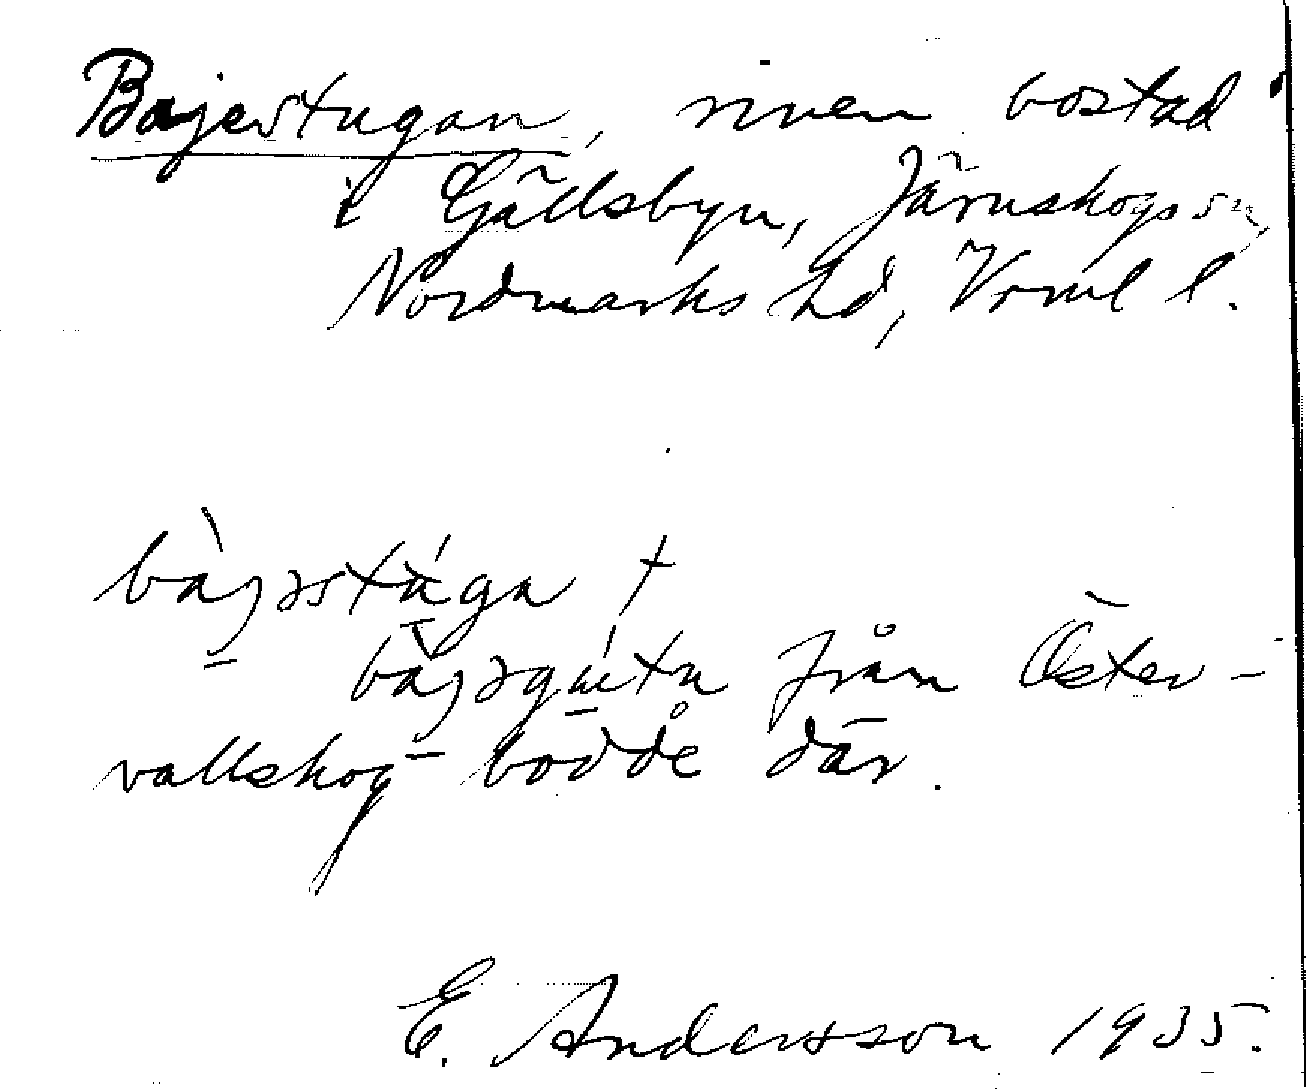 Bajerstugan, riven bostad
i Gällsbyn, Järnskogs sn,
Nordmarks hd, Vrml l.
bàjərstúga †
bàjərgúbn från Öster-
vallskog bodde där.
E. Andersson 1935.